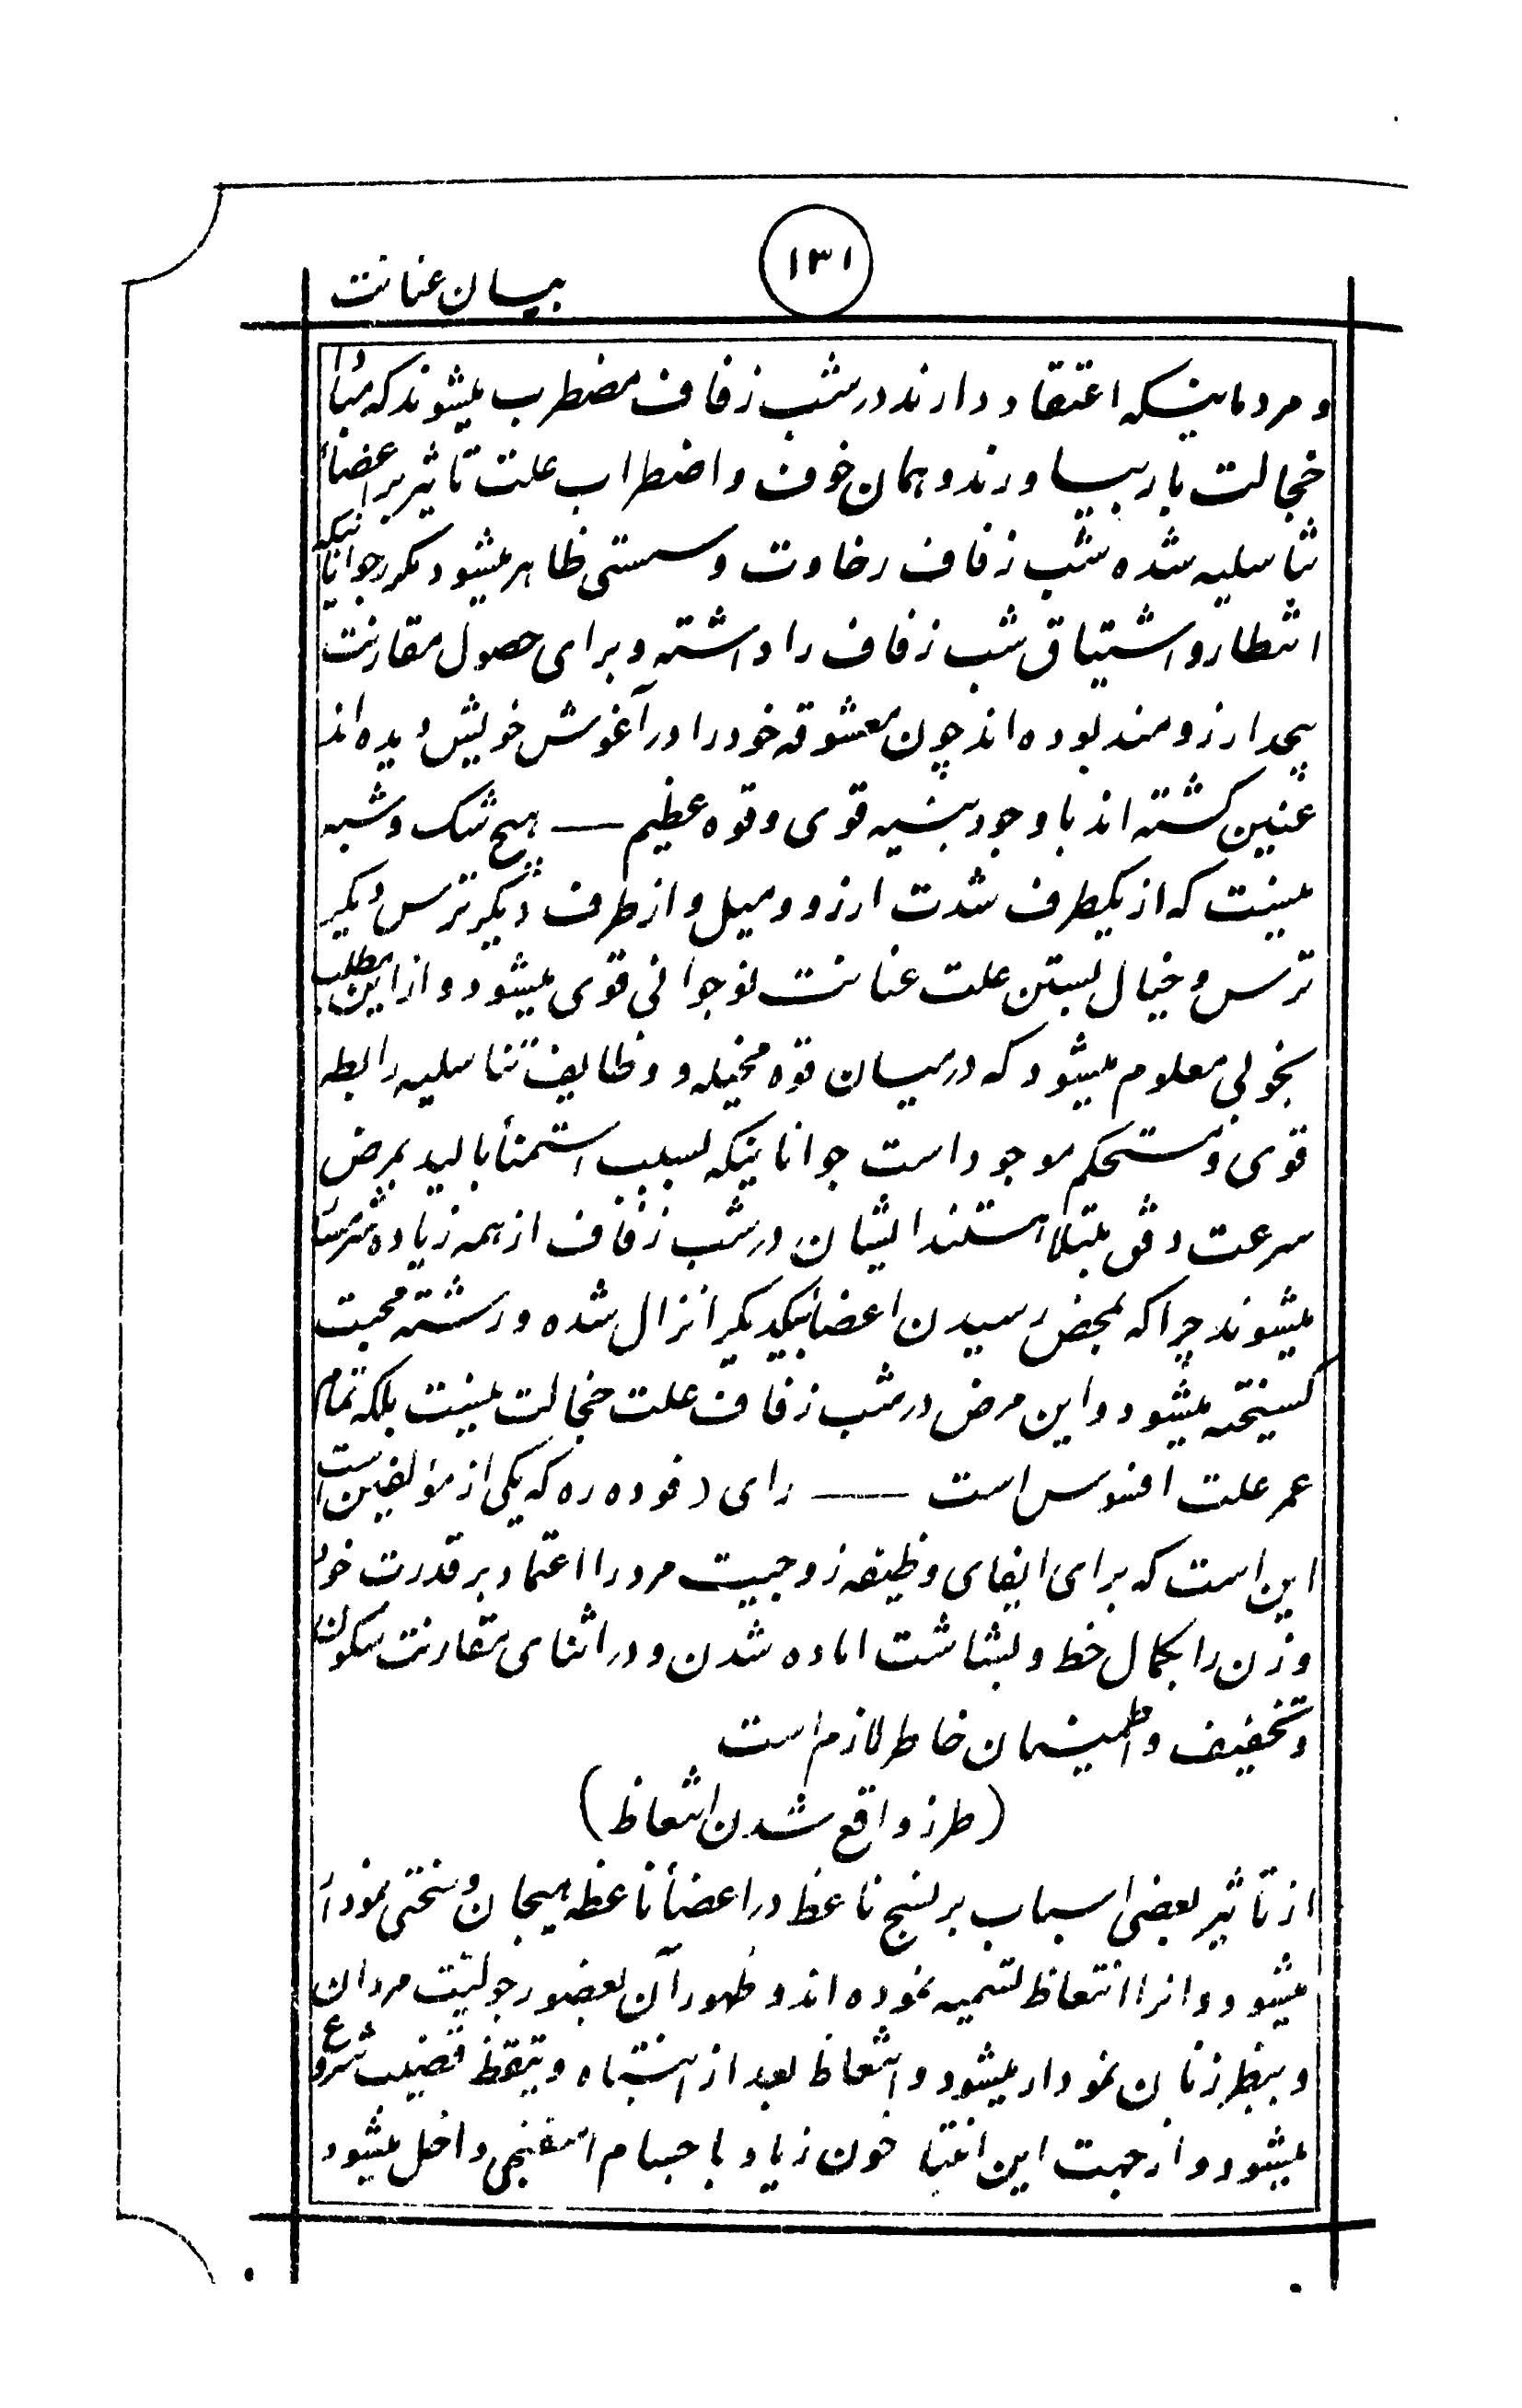 ۱۳۱
بیان عنانت
و مردمانیکه اعتقاد دارند در شب زفاف مضطرب میشوند که مبادا
خجالت بار بیاورند و همان خوف و اضطراب علت تاثیر بر اعضأ
تناسلیه شده شب زفاف رخاوت و سستی ظاهر میشود مکرر جوانانیکه
انتظار و اشتیاق شب زفاف را داشته و برای حصول مقارنت
بیحد ارزومند بوده اند چون معشوقه خود را در آغوش خویش دیده اند
عنین کشته اند با وجود بنیه قوی و قوه عظیم — هیچ شک و شبه
نیست که از یکطرف شدت ارزو و میل و از طرف دیکر ترس دیکر
ترس و خیال بستن علت عنانت نوجوانی قوی میشود و از این مطلب
بخوبی معلوم میشود که در میان قوه مخیله و وظایف تناسلیه رابطه
قوی و مستحکم موجود است جوانانیکه بسبب استمنأ بالید بمرض
سرعت دفق مبتلا هستند ایشان در شب زفاف از همه زیاده شرمسار
میشوند چرا که بمحض رسیدن اعضأ بیکدیکر انزال شده و رشته محبت
کسیخته میشود و این مرض در شب زفاف علت خجالت نیست بلکه تمام
عمر علت افسوس است — رای (فوده ره که یکی از مؤلفین است
این است که برای ایفای وظیفه زوجیت مرد را اعتماد بر قدرت خود
و زن را بکمال خط و بشاشت اماده شدن و در اثنای مقارنت سکون
و تخفیف و اطمینان خاطر لازم است
(طرز واقع شدن انتعاظ)
از تأثیر بعضی اسباب بر نسج ناعظ در اعضأ ناعظه هیجان و سختی نمودار
میشود و انرا انتعاظ تسمیه نموده اند و ظهور آن بعضو رجولیت مردان
و ببظر زنان نمودار میشود و انتعاظ بعد از انتباه و تیقظ قضیب شروع
میشود و از جهت این انتبا خون زیاد با جسام اسفنجی داخل میشود